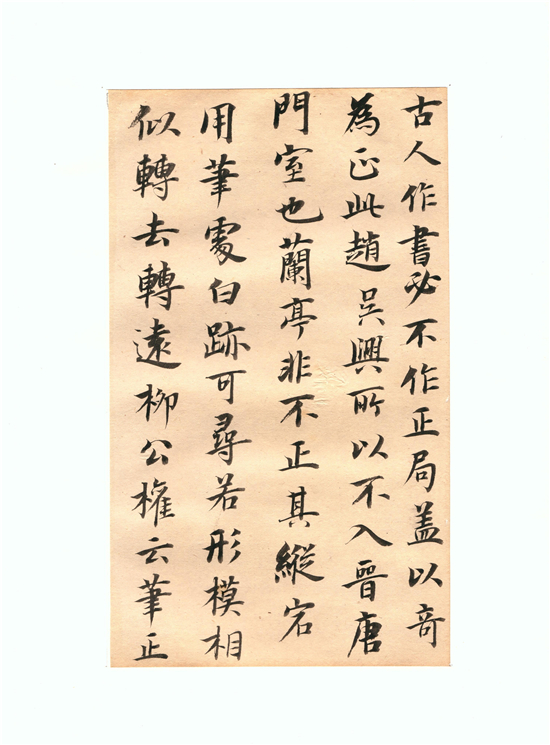 古人作書必不作正局蓋以奇
為正此趙吳興所以不入晉唐
門室也蘭亭非不正其縱宕
用筆處白跡可尋若形模相
似轉去轉遠柳公權云筆正